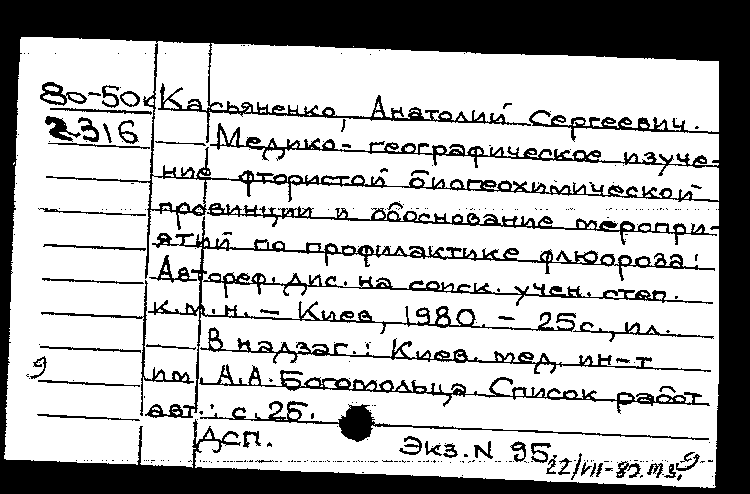 80-50к Касьяненко, Анатолий Сергеевич.
2316 Медико-географическое изуче-
ние фтористой биогеохимической
провинции и обоснование меропри-
ятий по профилактике флюороза:
Автореф. дис. на соиск. учен. степ.
к.м.н. – Киев, 1980. – 25с., ил.
В надзаг.: Киев. мед. ин-т
им. А.А.Богомольца. Список работ
авт.: с.25.
ДСП. Экз.N 95.